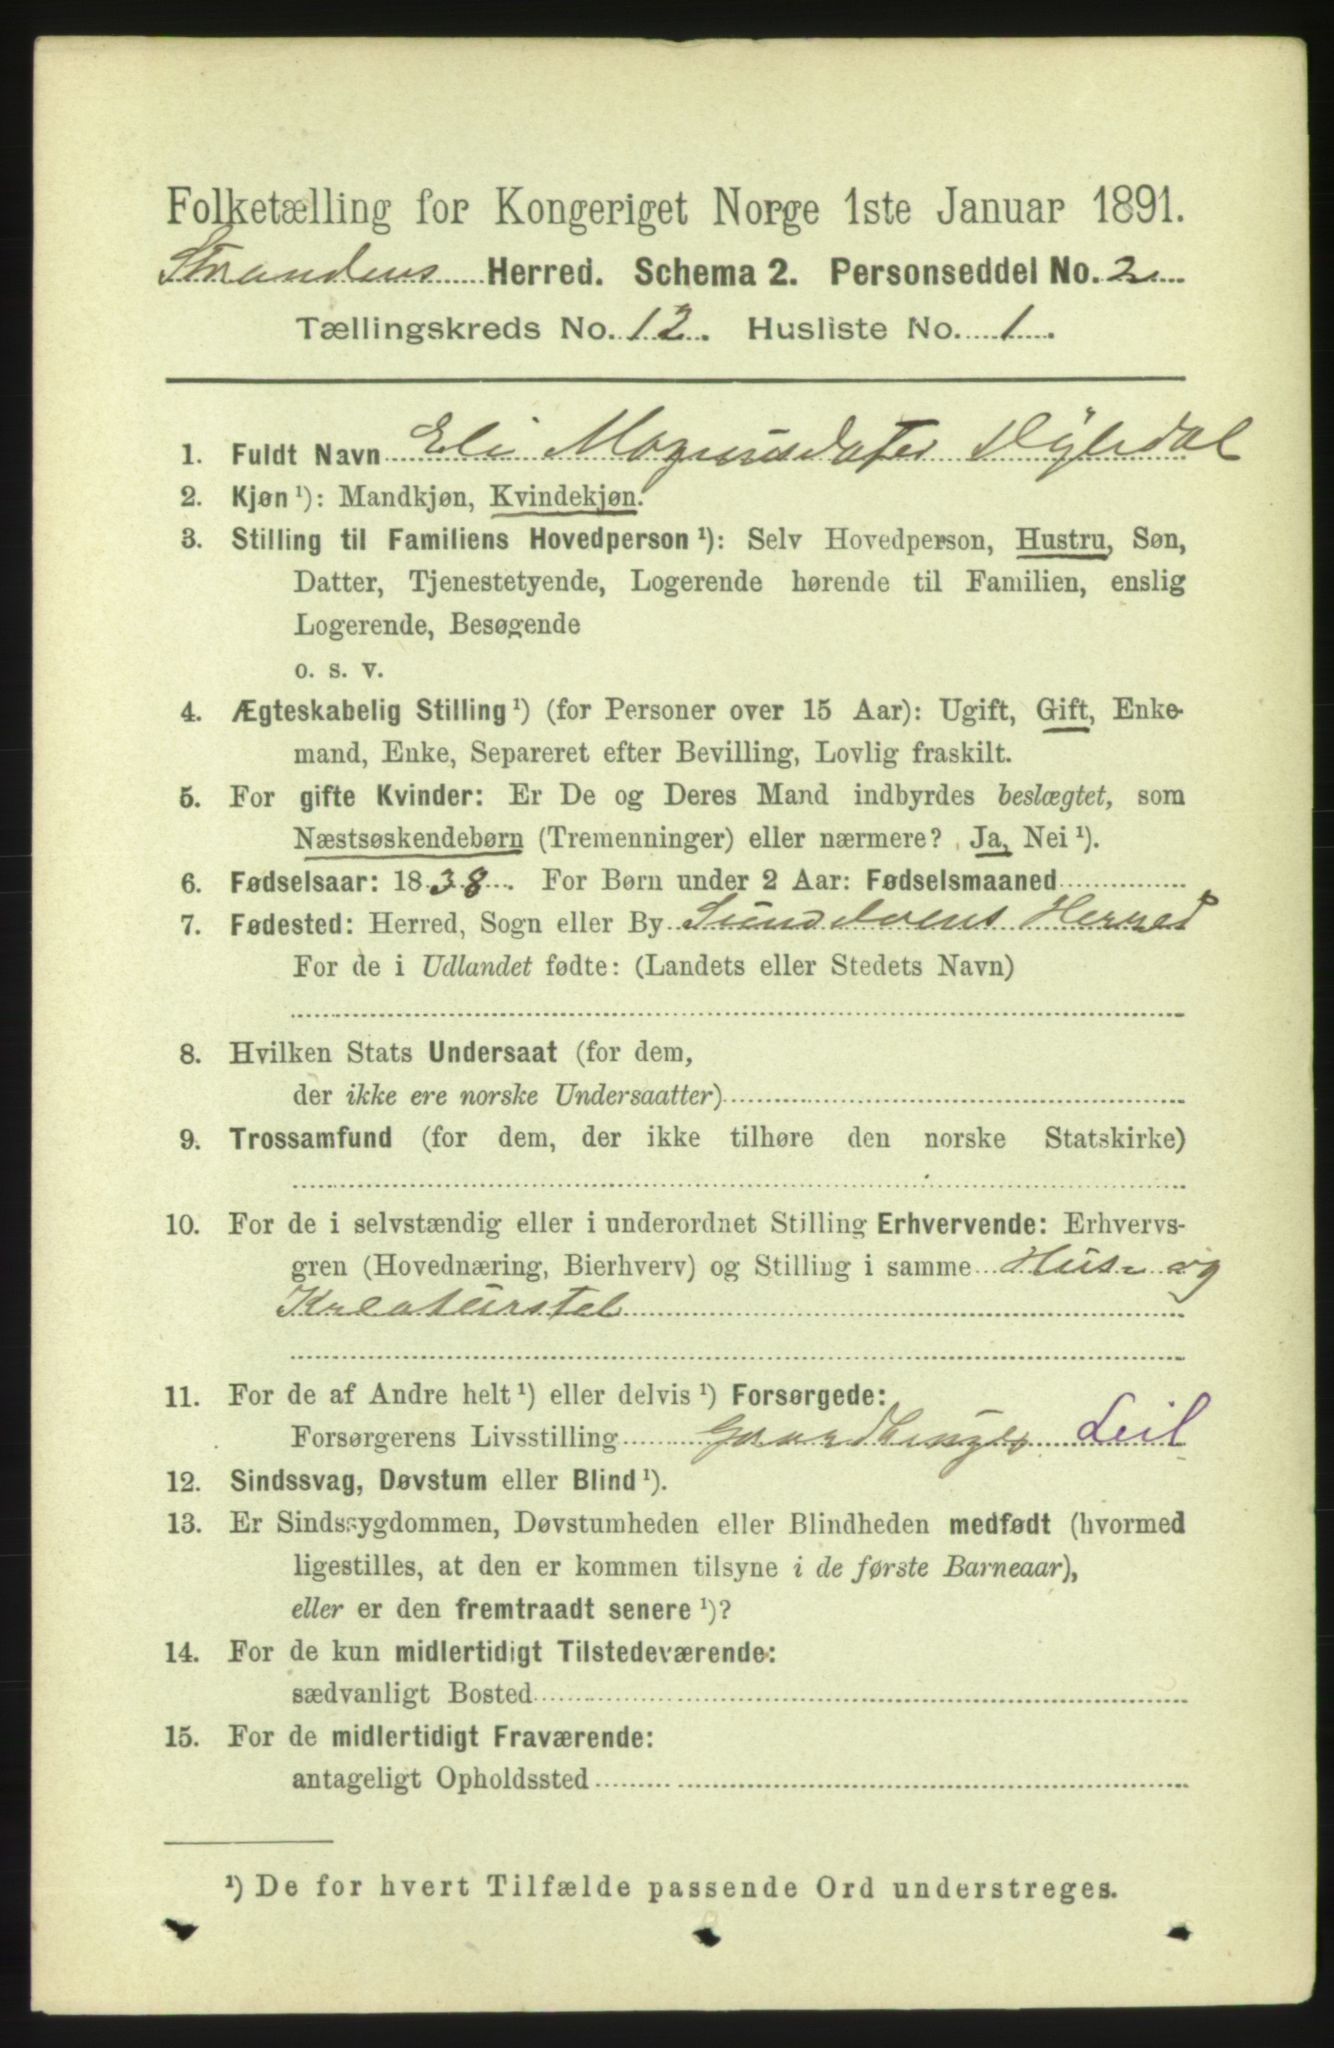 Folketælling for Kongeriget Norge 1ste Januar 1891.
Strandens Herred. Schema 2. Personseddel No. 2
Tællingskreds No. 12. Husliste No. 1.
1. Fuldt Navn Eli Magnusdater
2. Kjøn ¹): Mandkjøn, Kvindekjøn.
3. Stilling til Familiens Hovedperson ¹): Selv Hovedperson, Hustru, Søn,
Datter, Tjenestetyende, Logerende hørende til Familien, enslig
Logerende, Besøgende
o. s. v.
4. Ægteskabelig Stilling ¹) (for Personer over 15 Aar): Ugift, Gift, Enke-
mand, Enke, Separeret efter Bevilling, Lovlig fraskilt.
5. For gifte Kvinder: Er De og Deres Mand indbyrdes beslægtet, som
Næstsøskendebørn (Tremenninger) eller nærmere? Ja, Nei ¹).
6. Fødselsaar: 1838. For Børn under 2 Aar: Fødselsmaaned
7. Fødested: Herred, Sogn eller By Sunelvens Herred
For de i Udlandet fødte: (Landets eller Stedets Navn)
8. Hvilken Stats Undersaat (for dem,
der ikke ere norske Undersaatter)
9. Trossamfund (for dem, der ikke tilhøre den norske Statskirke)
10. For de i selvstændig eller i underordnet Stilling Erhvervende: Erhvervs-
gren (Hovednæring, Bierhverv) og Stilling i samme Hus- og
Kreaturstel
11. For de af Andre helt ¹) eller delvis ¹) Forsørgede:
Forsørgerens Livsstilling Gaardbruger Leil
12. Sindssvag, Døvstum eller Blind ¹).
13. Er Sindssygdommen, Døvstumheden eller Blindheden medfødt (hvormed
ligestilles, at den er kommen tilsyne i de første Barneaar),
eller er den fremtraadt senere ¹)?
14. For de kun midlertidigt Tilstedeværende:
sædvanligt Bosted
15. For de midlertidigt Fraværende:
antageligt Opholdssted
¹) De for hvert Tilfælde passende Ord understreges.